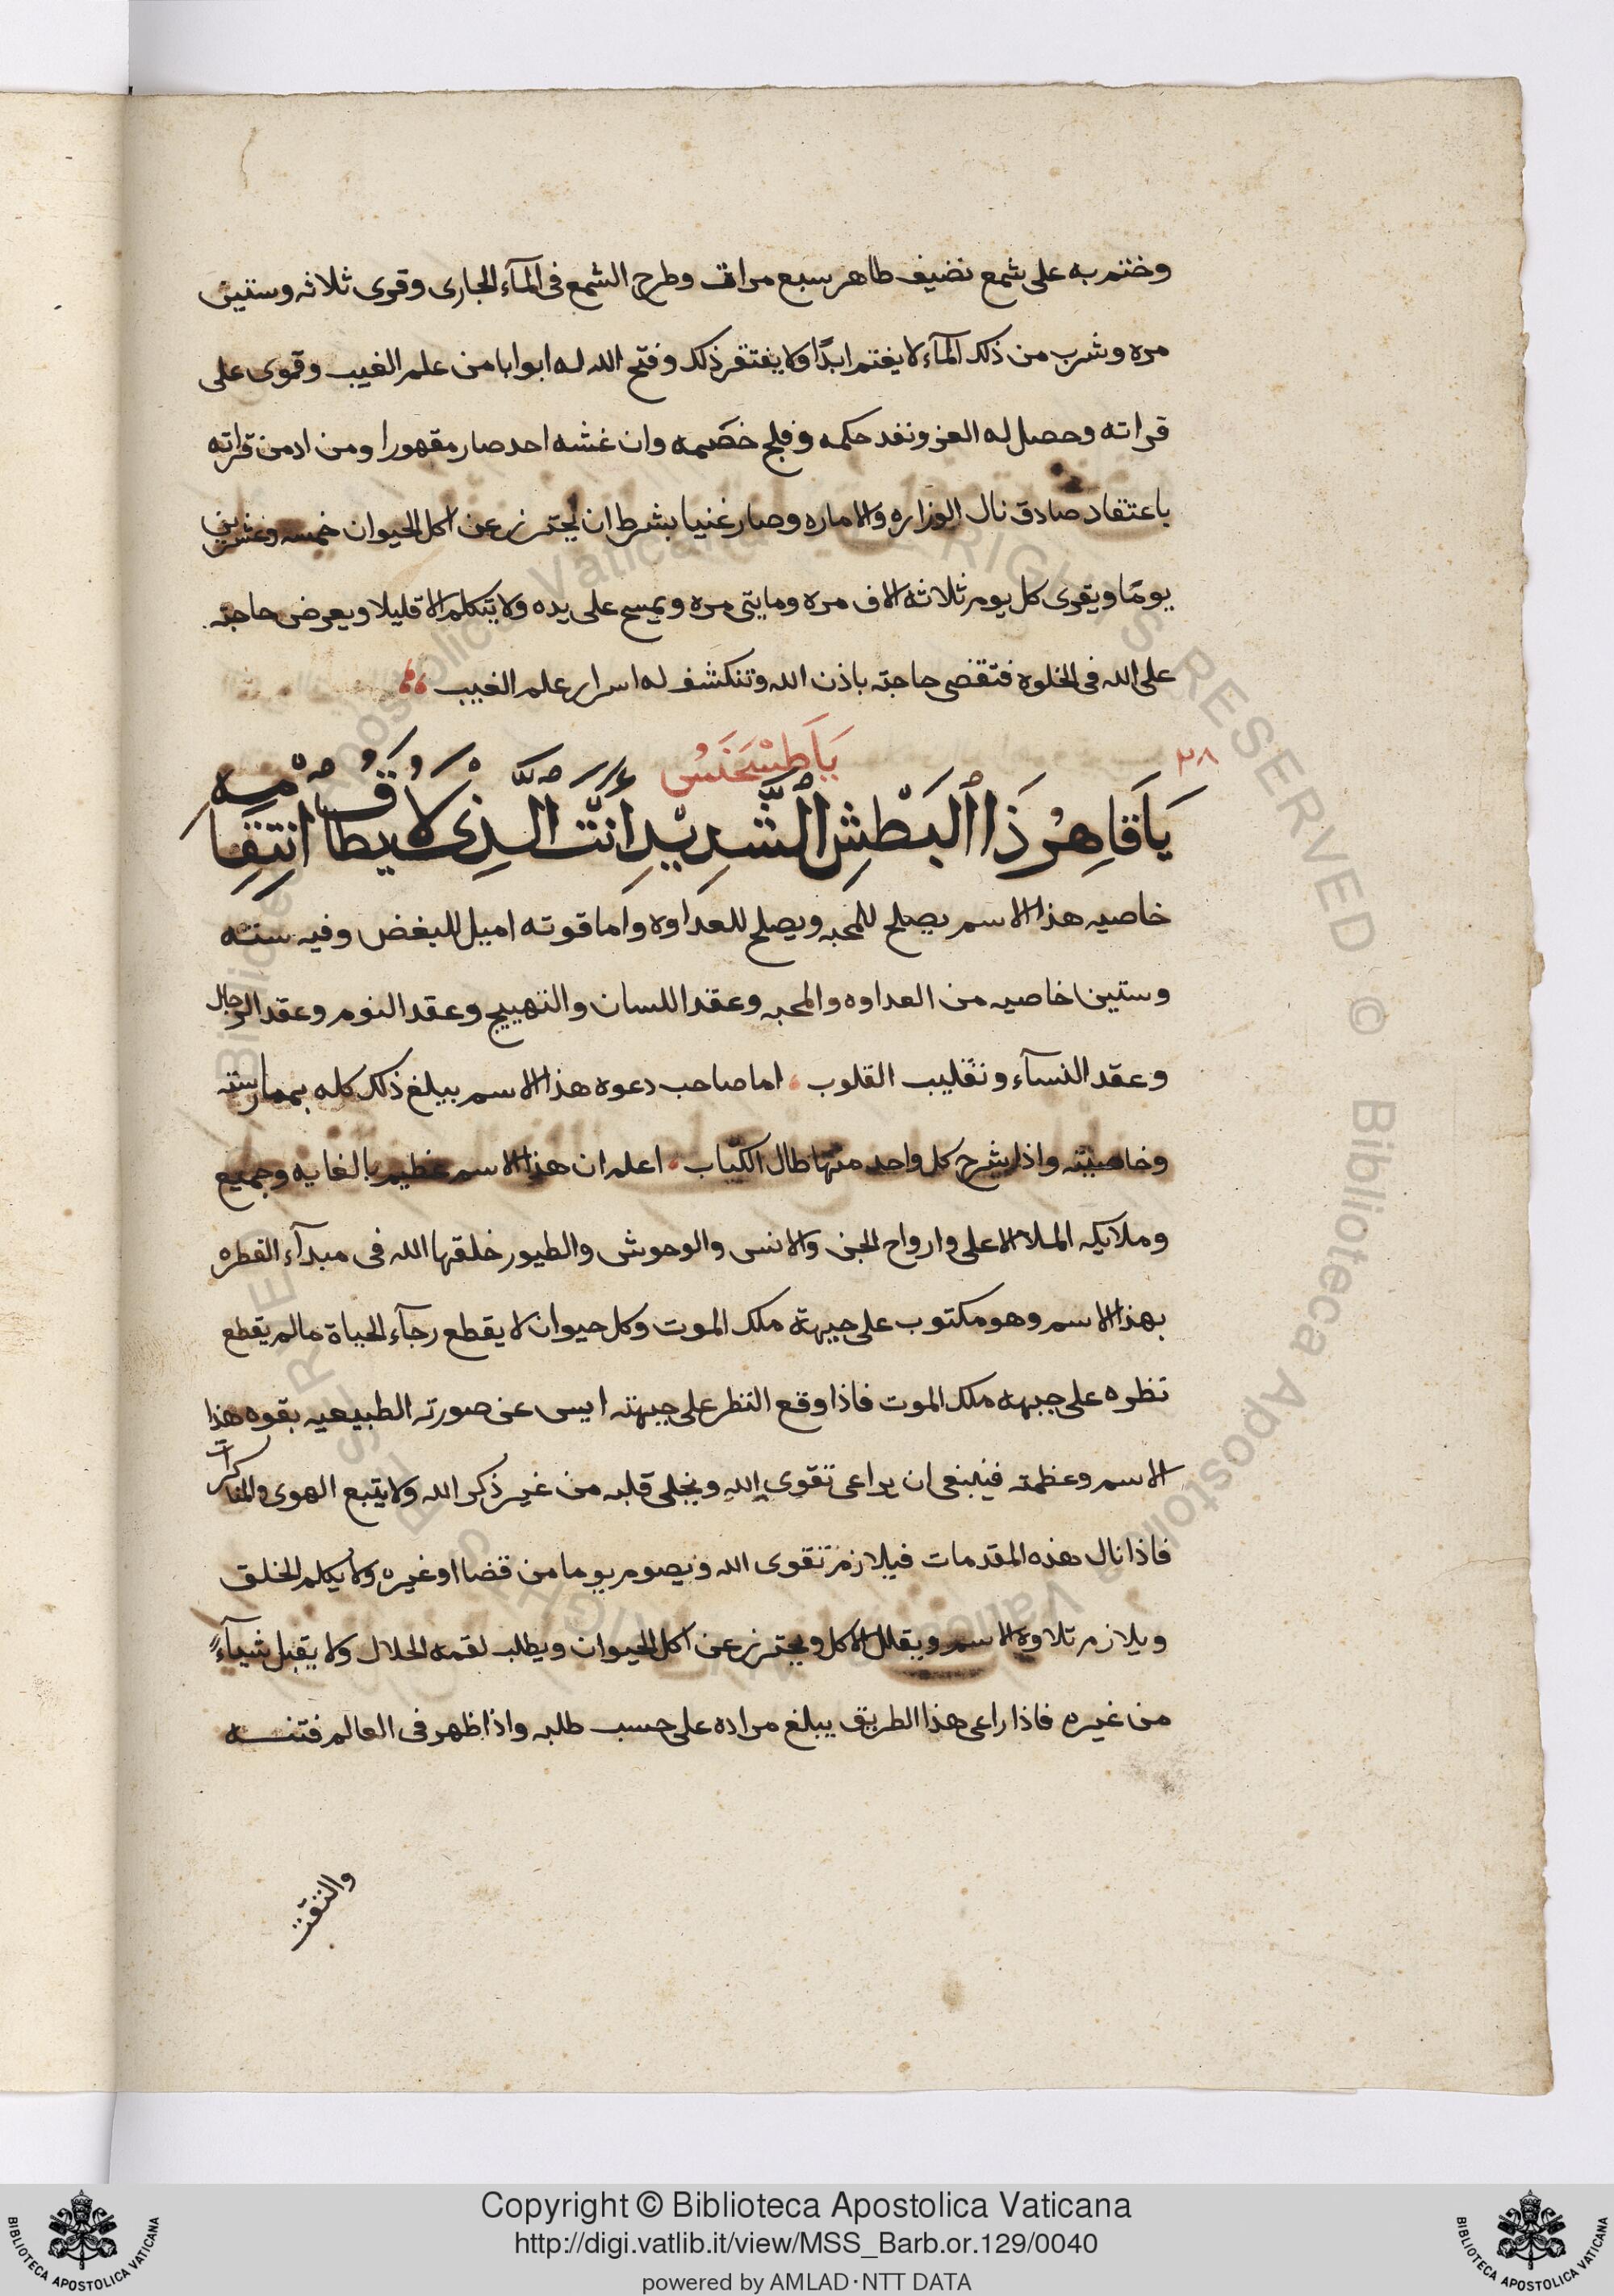 وختم به على شمع نضيف طاهر سبع مرات وطرح الشمع فى المآء الجارى وقرى ثلاثه وستين
مره وشرب من ذلك المآء لا يغتم ابدًا ولا يفتقر ذلك وفتح الله له ابوابا من علم الغيب وقوى على
قراته وحصل له العز ونفد حكمه وفلج خصمه وان غشه احد صار مقهورا ومن ادمن قراته
باعتقاد صادق نال الوزاره والاماره وصار غنيا بشرط ان يحترز عن اكل الحيوان خمسه وعشرين
يومًا ويقرى كل يوم ثلاثه الاف مره ومايتى مره ويمسح على يده ولا يتكلم الا قليلا ويعرض حاجته
على الله فى الخلوه فتقضى حاجته باذن الله وتنكشف له اسرار علم الغيب
٢٨
يَا قَاهِرُ ذَا ٱلبَطْشِ ٱلشَّدِيْدِ أَنْتَ الَّذِى لَا يُطَاقُ انْتِقَامُه
خاصيه هذا الاسم يصلح للمحبه ويصلح للعداوه واما قوته اميل للبغض وفيه سته
وستين خاصيه من العداوه والمحبه وعقد اللسان والتهييج وعقد النوم وعقد الرجال
وعقد النسآء وتقليب القلوب اما صاحب دعوه هذا الاسم يبلغ ذلك كله بممارسته
وخاصيته واذا يشرح كل واحد منها طال الكتاب اعلم ان هذا الاسم عظيم بالغايه وجميع
وملايكه الملا الاعلى وارواح الجن والانس والوحوش والطيور خلقها الله فى مبدآء الفطره
بهذا الاسم وهو مكتوب على جبهة ملك الموت وكل حيوان لا يقطع رجآء الحياة مالم يقطع
نظره على جبهه ملك الموت فاذا وقع النظر على جبهته ايس عن صورته الطبيعيه بقوه هذا
الاسم وعظمته فينبغى ان يراعى تقوى الله ويخلى قلبه من غير ذكر الله ولا يتبع الهوى والمناكرات
فاذا نال هذه المقدمات فيلازم تقوى الله ويصوم يوما من قضا او غيره ولا يكلم الخلق
ويلازم تلاوه الاسم ويقلل الاكل ويحترز عن اكل الحيوان ويطلب لقمه الحلال ولا يقبل شيآءً
من غيره فاذا راعى هذا الطريق يبلغ مراده على حسب طلبه واذا ظهر فى العالم فتنه
Copyright © Biblioteca Apostolica Vaticana
http://digi.vatlib.it/view/MSS_Barb.or.129/0040
powered by AMLAD·NTT DATA
BIBLIOTECA APOSTOLICA VATICANA
BIBLIOTECA APOSTOLICA VATICANA